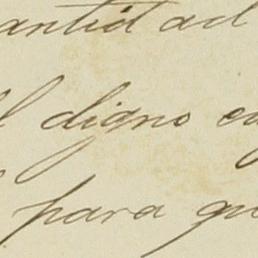 antidad
el digno en
para qu